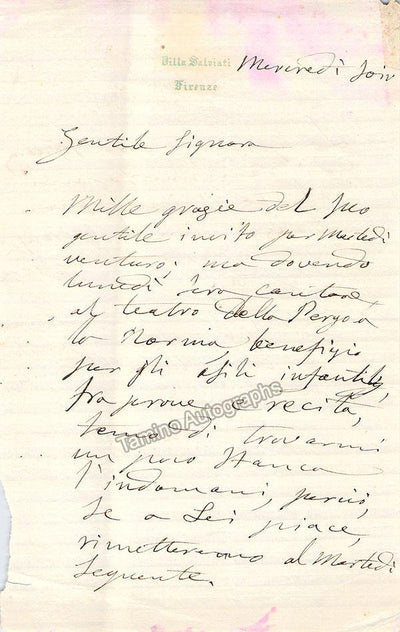 Villa Salviati
Firenze
Mercredi Soir
Gentile Signora
Mille grazie del suo
gentile invito per Martedi
venturo; ma dovendo
lunedì sera cantare,
al teatro della Pergola
la Norma benefizio
per gli Asili infantili,
fra prove e recita,
temo di trovarmi
un poco stanca
l'indomani, perciò,
se a Lei piace,
rimetteremo al Martedi
seguente.
Tamino Autographs